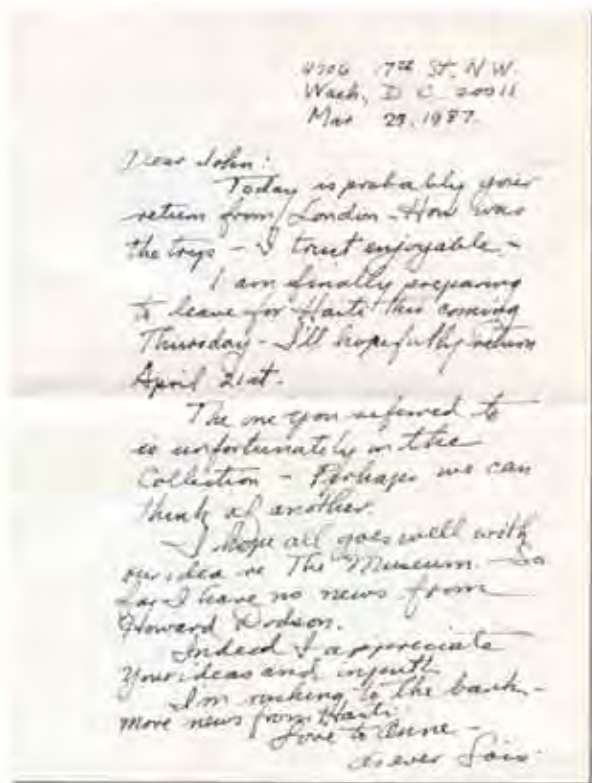 4706 17th St. N W.
Wash, D C 20011
Mar 29, 1987.
Dear John:
Today is probably your
return from London - How was
the trip - I trust enjoyable -
I am finally preparing
to leave for Haiti this coming
Thursday - I'll hopefully return
April 21st.
The one you referred to
is unfortunately in the
Collection - Perhaps we can
think of another.
I hope all goes well with
our idea re The Museum. So
far I have no news from
Howard Dodson.
Indeed I appreciate
your ideas and
I'm rushing to the bank -
more news from Haiti.
Love to Anne -
As ever Lois.